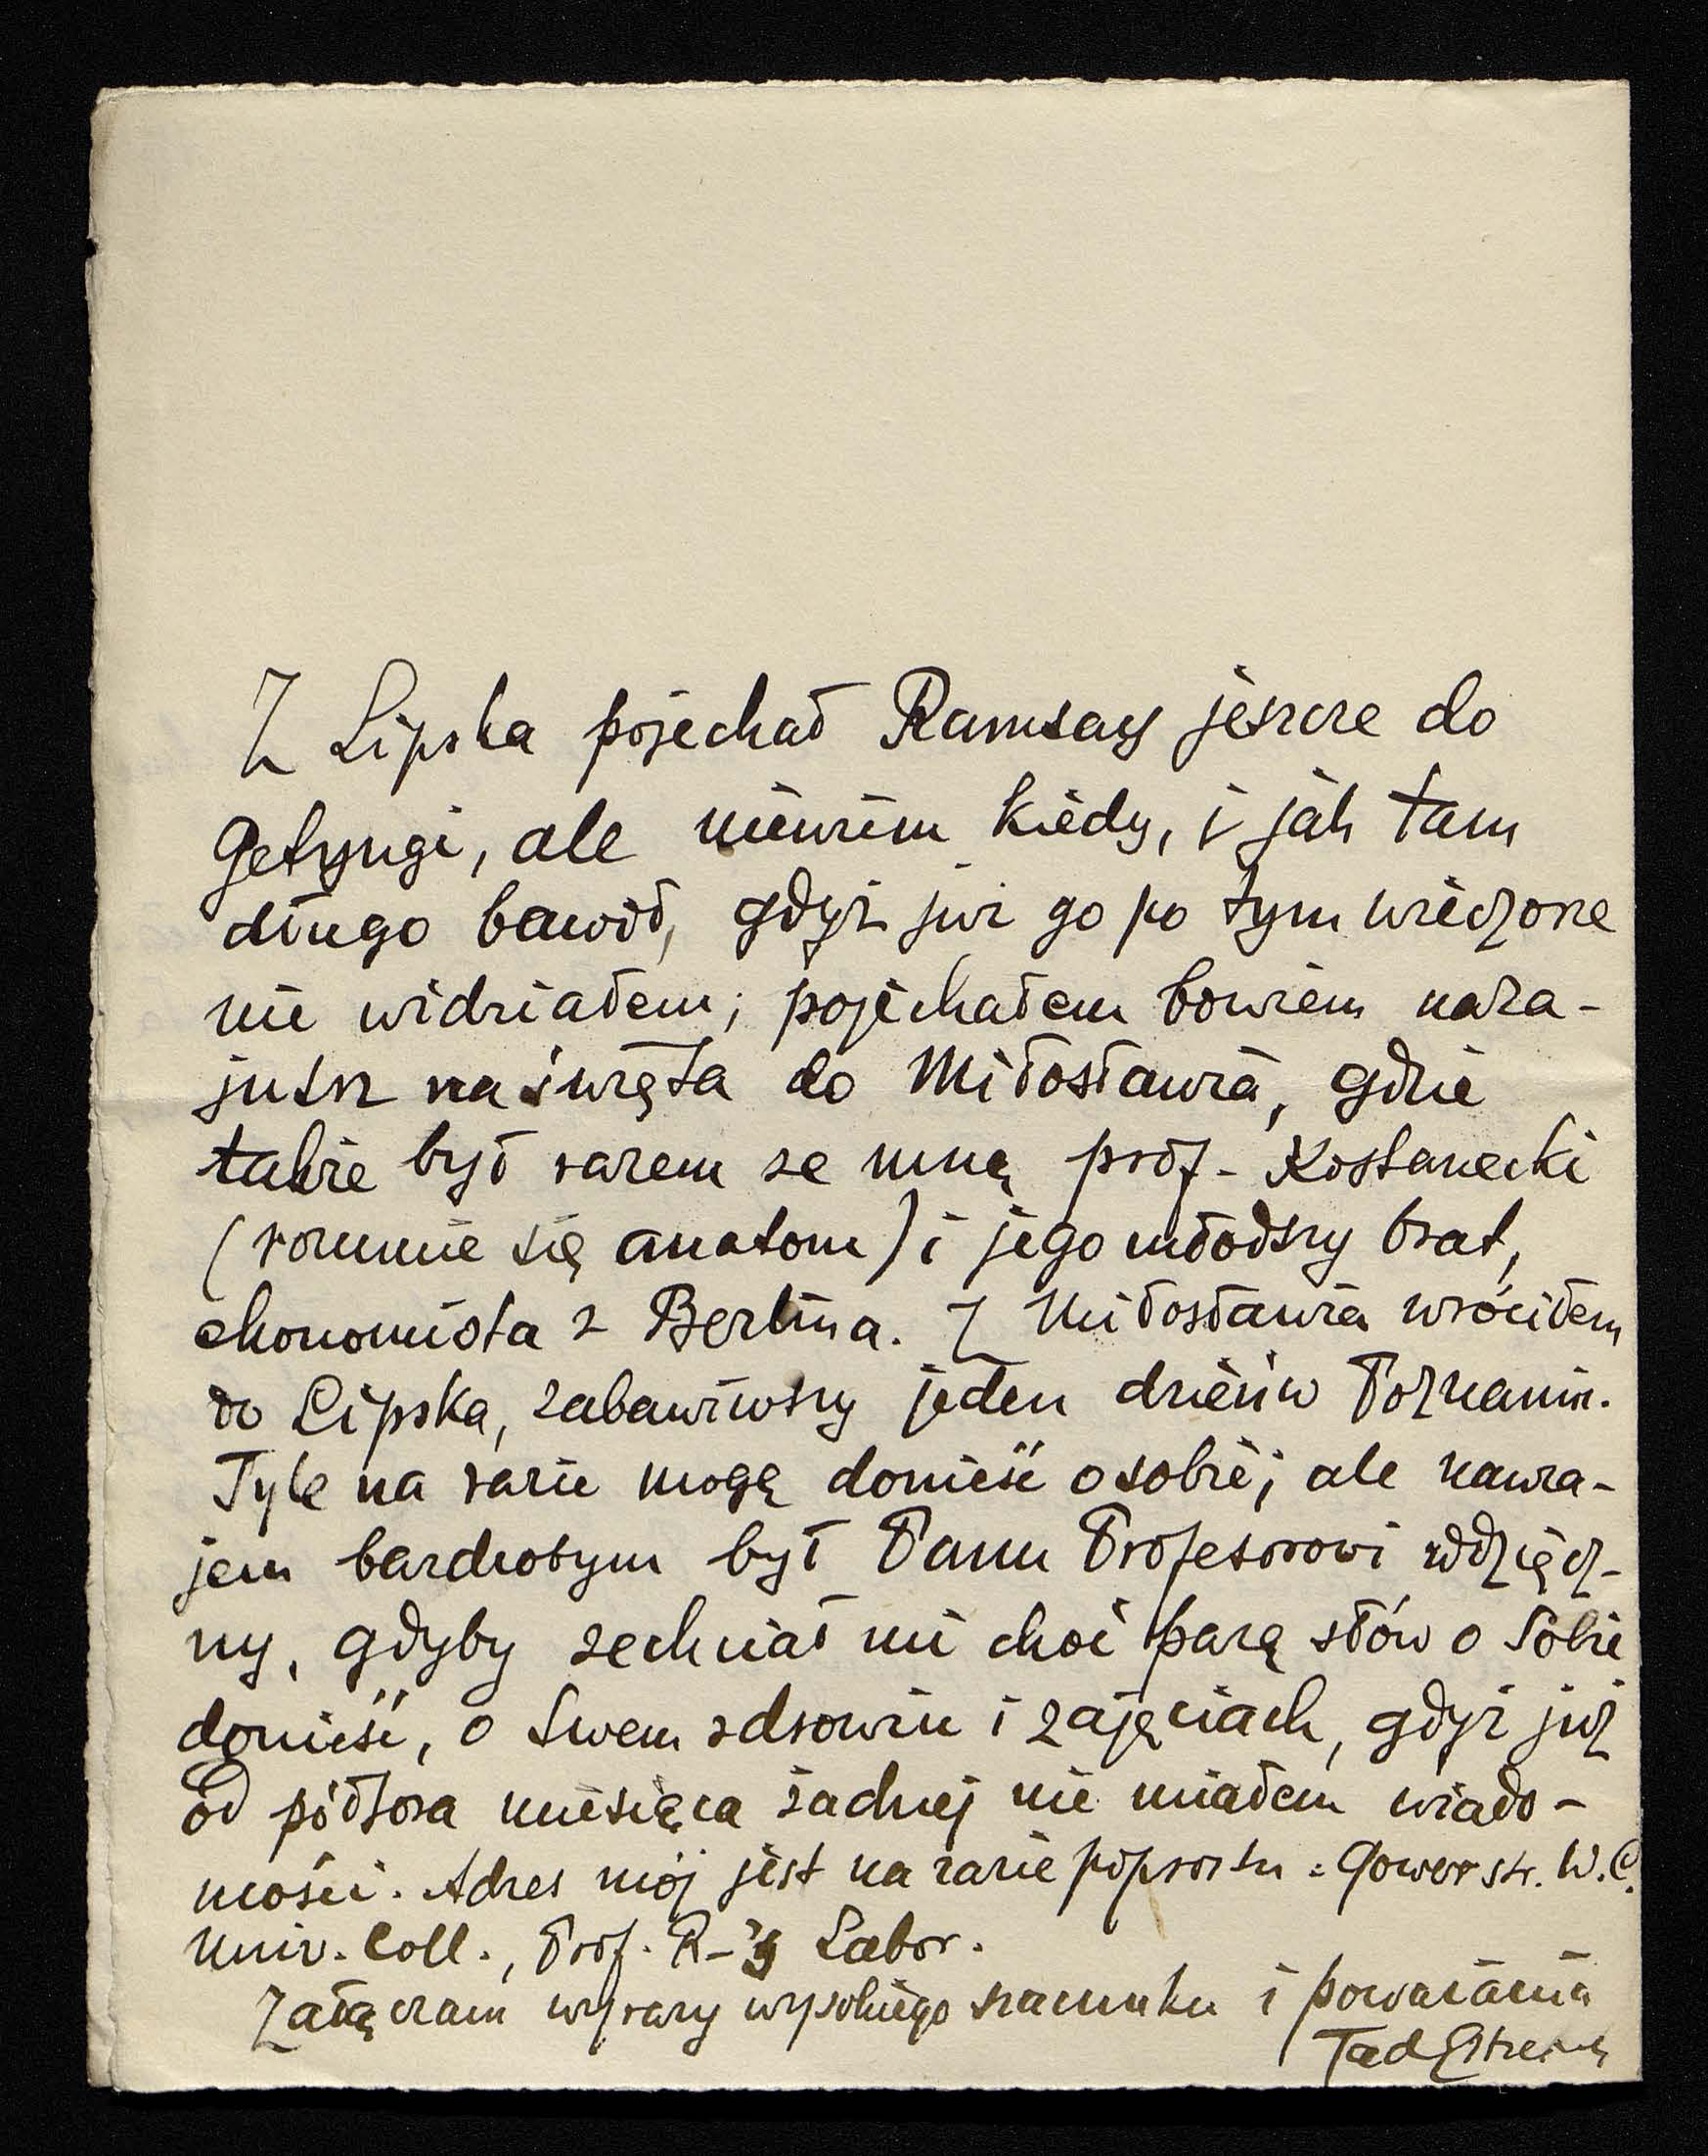 Z Lipska pojechał Ramsay jeszcze do
Getyngi, ale niewiem kiedy, i jak tam
długo bawił, gdyż już go po tym wieczorze
nie widziałem; pojechałem bowiem naza-
jutrz na święta do Miłosławia, gdzie
także był razem ze mną prof. Kostanecki
(rozumie się anatom) i jego młodszy brat,
ekonomista z Berlina. Z Miłosławia wróciłem
do Lipska, zabawiwszy jeden dzień w Poznaniu.
Tyle na razie mogę donieść o sobie; ale nawza-
jem bardzobym był Panu Profesorowi wdzięcz-
ny, gdyby zechciał mi choć parę słów o Sobie
donieść, o Swem zdrowiu i zajęciach, gdyż już
od półtora miesiąca żadnej nie miałem wiado-
mości. Adres mój jest na razie poprostu: Gower str. W.C.
Univ. Coll., Prof. R-'s Labor.
Załączam wyrazy wysokiego szacunku i poważania
Tad Estreich